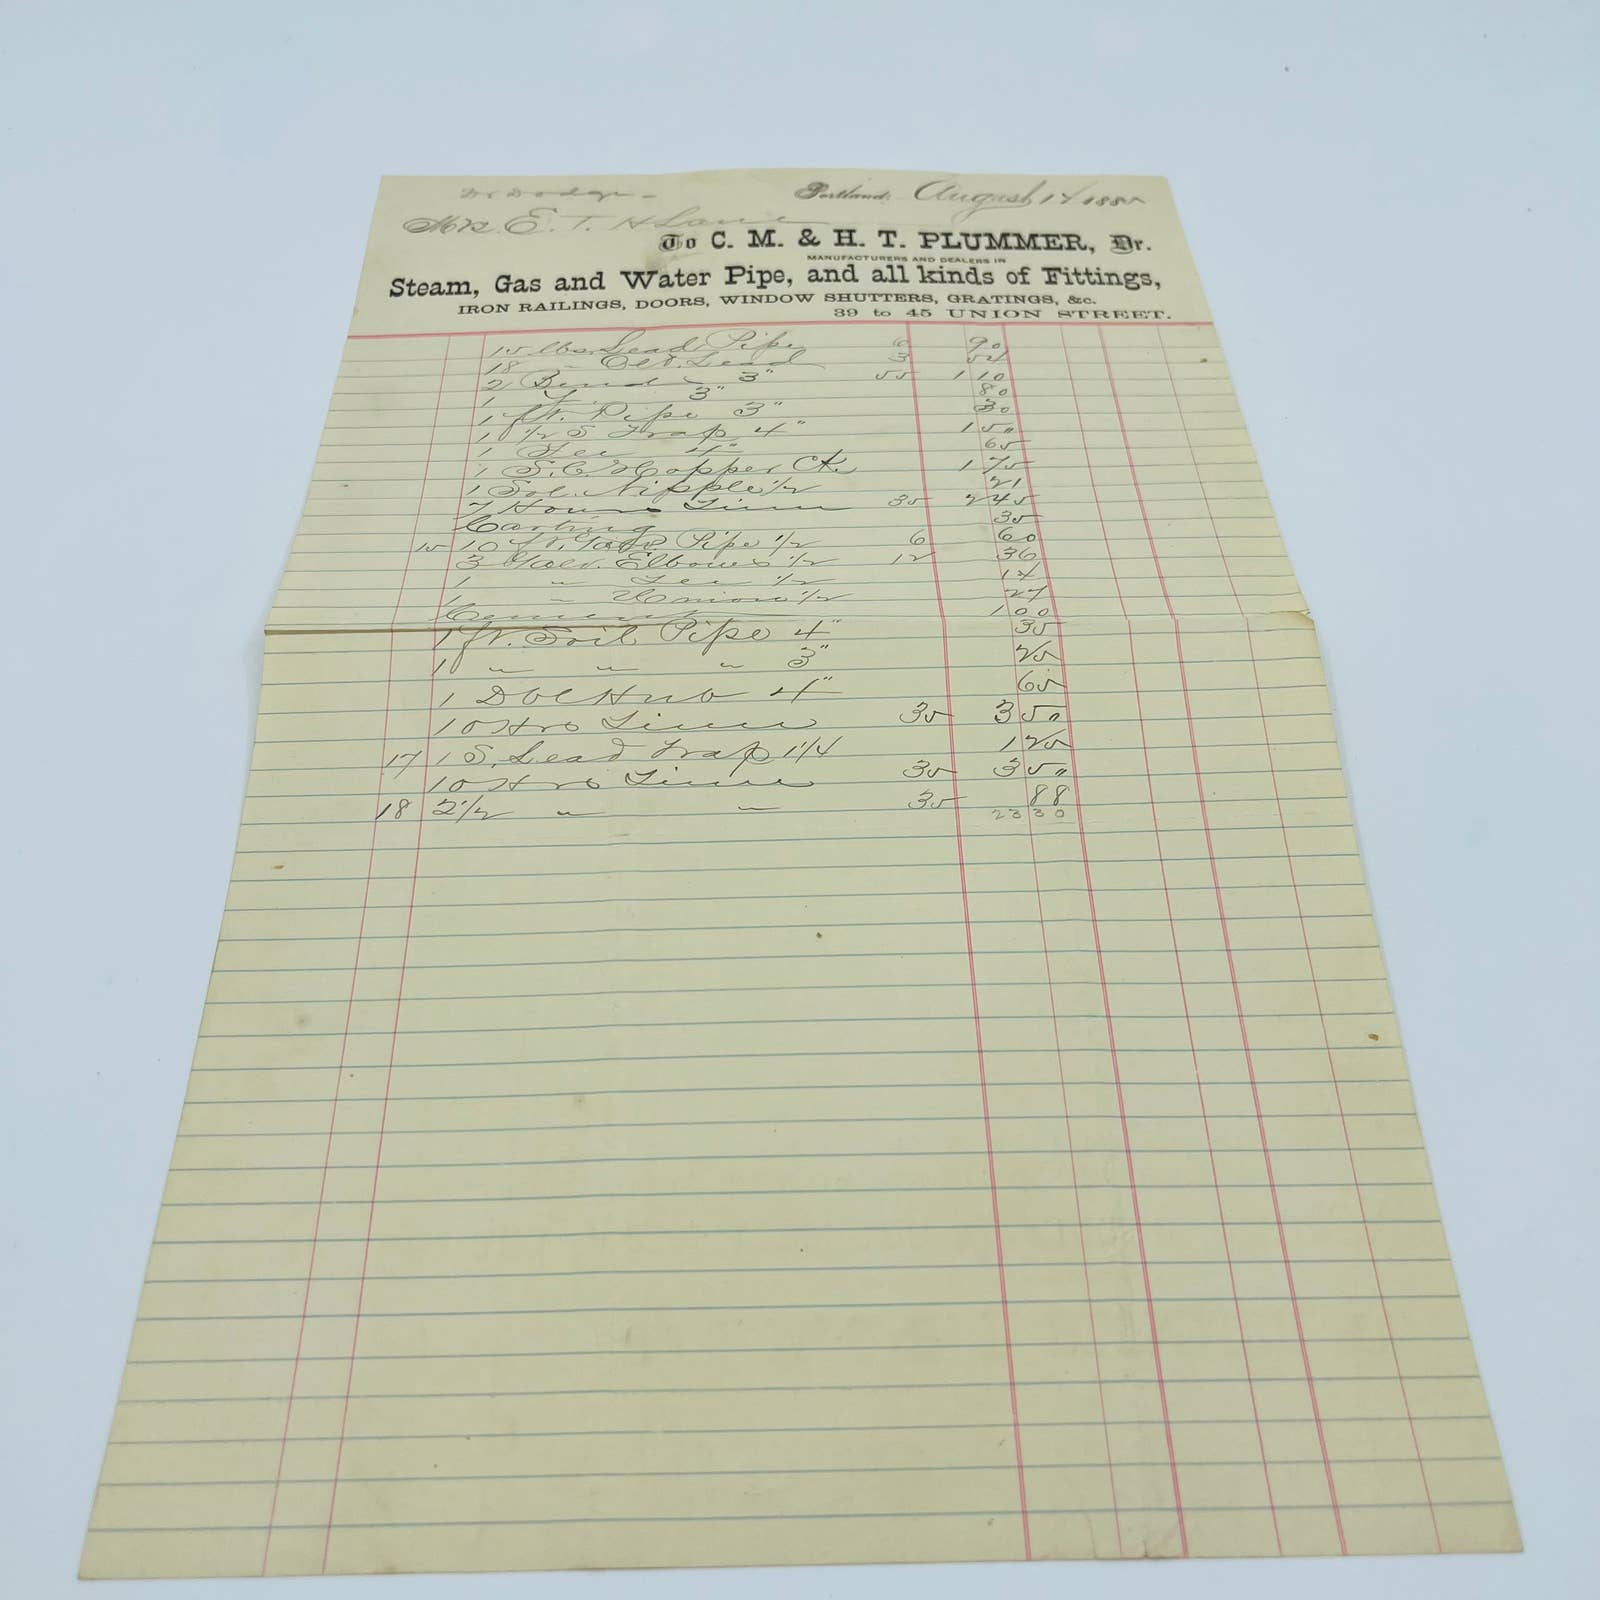 Dr Dodge
Portland, August 14 188
Mrs. E. T.
To C. M. & H. T. PLUMMER, Dr.
MANUFACTURERS AND DEALERS IN
Steam, Gas and Water Pipe, and all kinds of Fittings,
IRON RAILINGS, DOORS, WINDOW SHUTTERS, GRATINGS, &c.
39 to 45 UNION STREET.
15 lbs. Lead Pipe 6 90
18 " Old. Lead 3 54
2 Bends 3" 55 1 10
1 Y. 3" 80
1 ft. Pipe 3" 30
1 1/2 S Trap 4" 1 50
1 Tee 4" 65
1 S. C. Hopper Ck. 1 75
1 Sol. Nipple 1/2 21
7 Hours Time 35 2 45
Carting 35
15 10 ft. Galv. Pipe 1/2 6 60
3 Galv. Elbows 1/2 12 36
1 " Tee 1/2 14
1 " Union 1/2 27
Cement 1 00
1 ft. Soil Pipe 4" 35
1 " " " 3" 25
1 Dbl Hub 4" 65
10 Hrs Time 35 3 50
17 1 S. Lead Trap 1 1/4 1 25
10 Hrs Time 35 3 50
18 2 1/2 " " 35 88
23 30